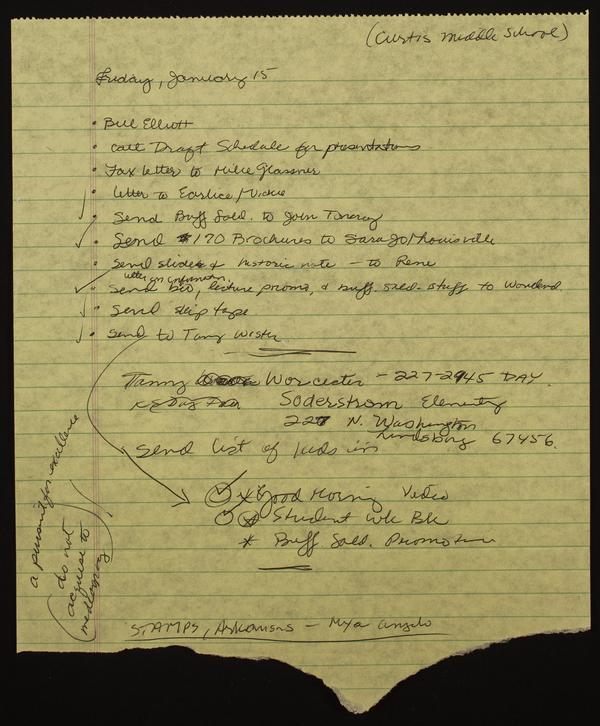 (Curtis Middle School)
Friday, January 15
• Bill Elliott
• Call Draft Schedule for presentations
• Fax letter to Mike Glassner
• letter to Earlice/Vickie
• Send Buff Sold. to Join
• Send #170 Brochures to Sara Jo/Louisville
• Send slides & historic note - to Rene
letter on information,
• Send bio, lecture promo, & Buff. Sold. stuff to
• Send skip tape
• Send to Tamy
Tammy Worcester - 227-2945 DAY
Soderstrom Elementary
227 N. Washington
Lindsborg 67456
Send list of kids in
* Good Morning Video
* Student Wk Bk
* Buff Sold. Promotion
a pursuit for excellence
do not
acquise to
mediocracy
STAMPS, Arkansas - Mya Angelo